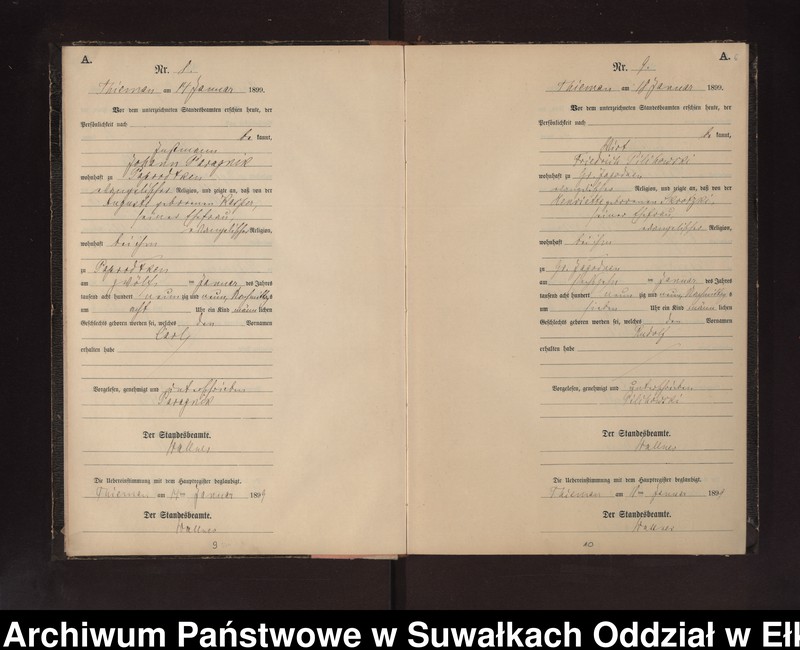 A.
Nr. 8.
Thieman am 14 Januar 1899.
Vor dem unterzeichneten Standesbeamten erschien heute, der
Persönlichkeit nach
be kannt,
Johann
wohnhaft zu
evangelischer Religion, und zeigte an, daß von der
geborenen
seiner Ehefrau,
evangelischer Religion,
wohnhaft bei ihm
zu
am zwölften Januar des Jahres
tausend acht hundert neun zig und neun, Nachmittags
um acht Uhr ein Kind männ lichen
Geschlechts geboren worden sei, welches den Vornamen
Carl
erhalten habe
Vorgelesen, genehmigt und unterschrieben
Der Standesbeamte.
Wallner
Die Uebereinstimmung mit dem Hauptregister beglaubigt.
Thieman am Januar 1899
Der Standesbeamte.
Wallner
9
A.
6
Nr. 9.
Thieman am 18 Januar 1899.
Vor dem unterzeichneten Standesbeamten erschien heute, der
Persönlichkeit nach
be kannt,
Wirt
Friedrich
wohnhaft zu Gr. Jagodnen
evangelischer Religion, und zeigte an, daß von der
geborenen
seiner Ehefrau
evangelischer Religion,
wohnhaft bei ihm
zu Gr. Jagodnen
am Januar des Jahres
tausend acht hundert neun zig und neun, Nachmittag s
um sieben Uhr ein Kind männ lichen
Geschlechts geboren worden sei, welches den Vornamen
Rudolf
erhalten habe
Vorgelesen, genehmigt und unterschrieben
Der Standesbeamte.
Wallner
Die Uebereinstimmung mit dem Hauptregister beglaubigt.
Thieman am Januar 1899
Der Standesbeamte.
Wallner
10
Archiwum Państwowe w Suwałkach Oddział w Ełk